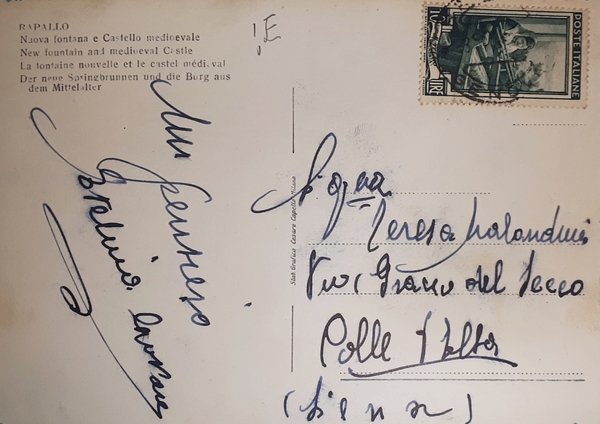 RAPALLO
Nuova fontana e Castello medioevale
New fountain and medioeval Castle
La fontaine nouvelle et le castel médiéval
Der neue Springbrunnen und die Burg aus
dem Mittelalter
E
POSTE ITALIANE
LIRE
10
Stab. Grafico Cesare Capello Milano
Sig.na
Teresa
Via del Secco
Colle d'Elsa
(Siena)
un pensiero